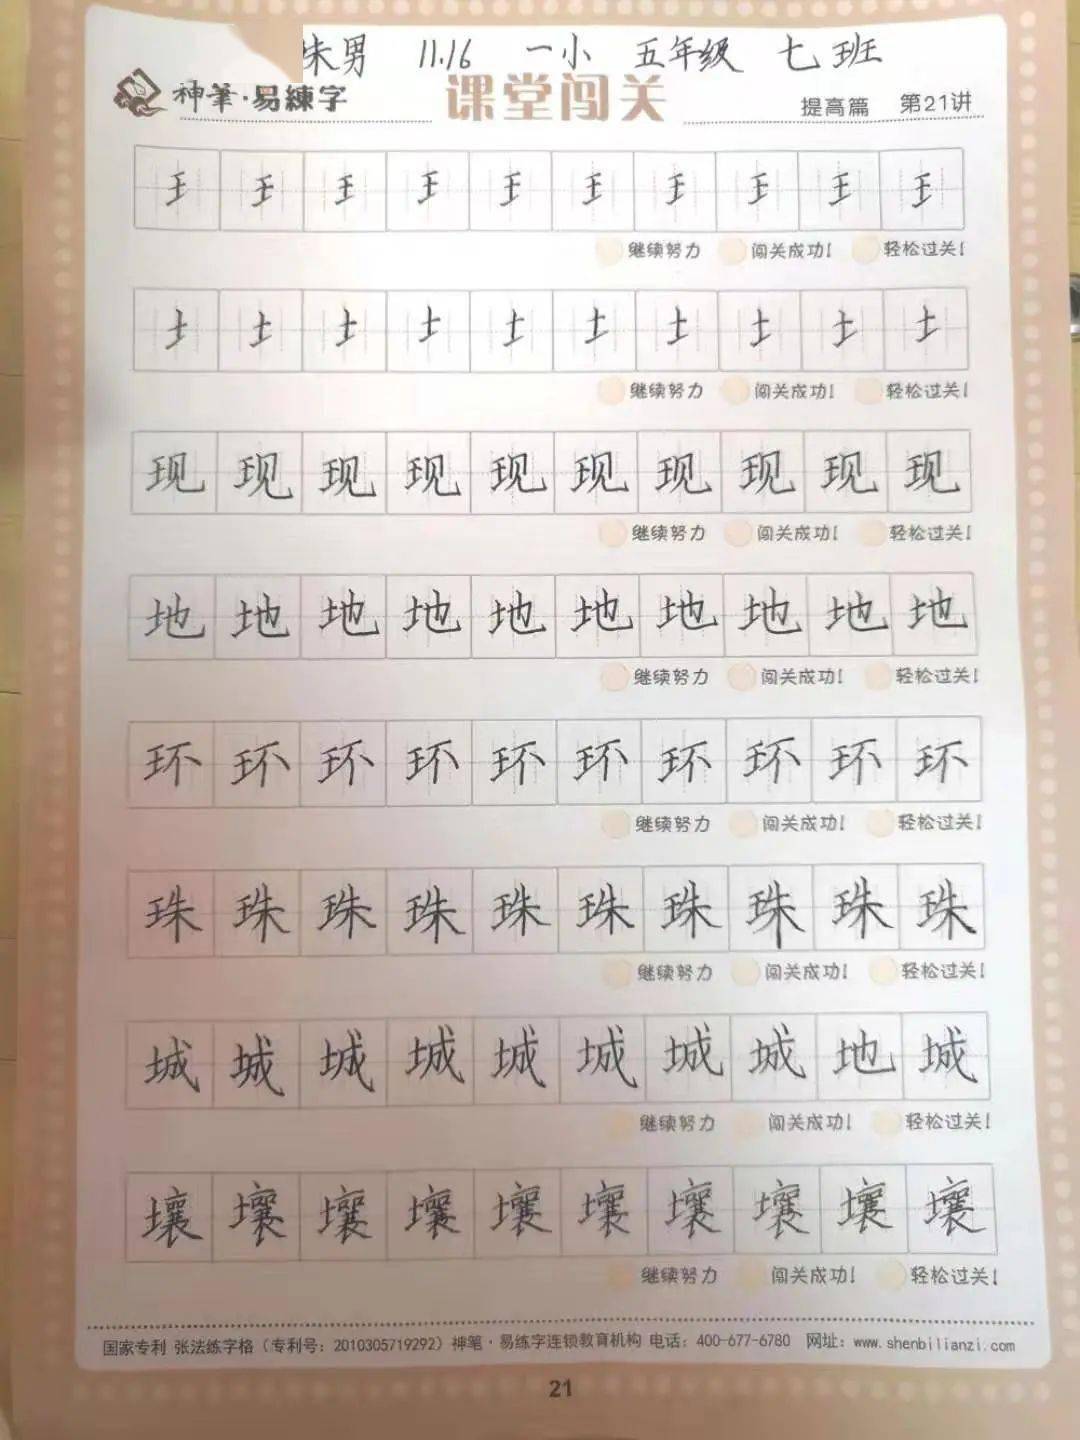 珠男 11.16 一小 五年级 七班
神筆·易練字 课堂闯关 提高篇 第21讲
王 王 王 王 王 王 王 王 王 王
继续努力 闯关成功! 轻松过关!
土 土 土 土 土 土 土 土 土 土
继续努力 闯关成功! 轻松过关!
现 现 现 现 现 现 现 现 现 现
继续努力 闯关成功! 轻松过关!
地 地 地 地 地 地 地 地 地 地
继续努力 闯关成功! 轻松过关!
环 环 环 环 环 环 环 环 环 环
继续努力 闯关成功! 轻松过关!
珠 珠 珠 珠 珠 珠 珠 珠 珠 珠
继续努力 闯关成功! 轻松过关!
城 城 城 城 城 城 城 城 地 城
继续努力 闯关成功! 轻松过关!
壤 壤 壤 壤 壤 壤 壤 壤 壤 壤
继续努力 闯关成功! 轻松过关!
国家专利 张法练字格(专利号:2010305719292)神笔·易练字连锁教育机构 电话:400-677-6780 网址:www.shenbilianzi.com
21